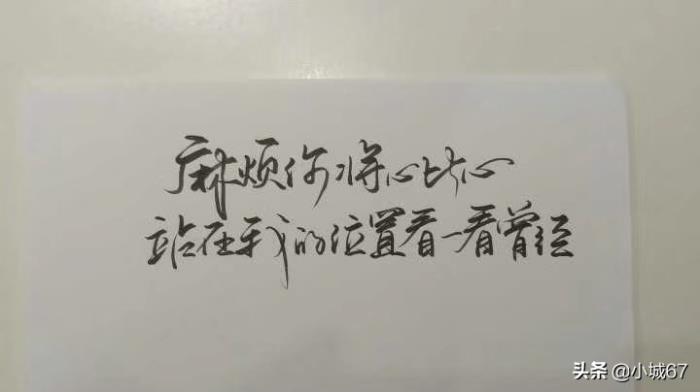 麻烦你将心比心
站在我的位置看一看曾经
头条 @小城67